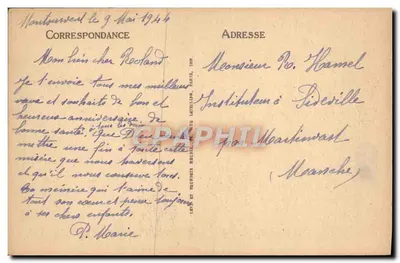 Montourvert le 9 Mai 1944
CORRESPONDANCE
Mon bien cher Roland
Je t'envoie tous mes meilleurs
vœux et souhaits de bon et
heureux anniversaire, de
bonne santé, que
mettre une fin à toute cette
misère que nous traversons
et qu'il nous conserve tous.
ta mémère qui t'aime de
tout son cœur et pense toujours
à ses chers enfants.
P. Marie
ADRESSE
Monsieur R. Hamel
Instituteur à Sideville
par Martinvast
Manche
CARTPHILIA